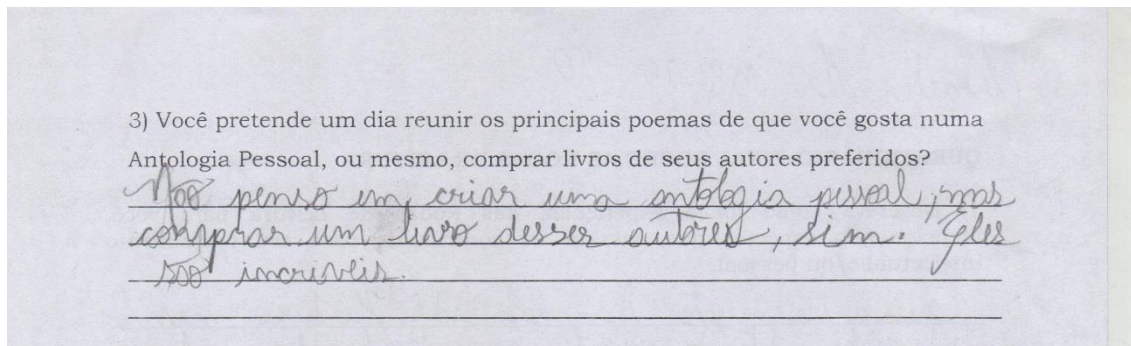 3) Você pretende um dia reunir os principais poemas de que você gosta numa
Antologia Pessoal, ou mesmo, comprar livros de seus autores preferidos?
Não penso em criar uma antologia pessoal, mas
comprar um livro desses autores, sim. Eles
são incríveis.